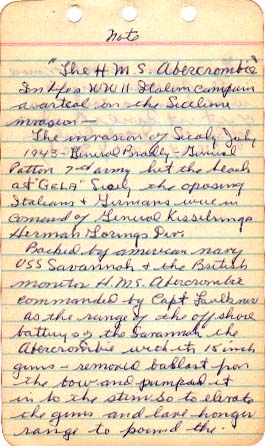 Note
"The H M S. Abercrombie"
In Yes WW II Italian Campain
a artical on the Siciline
invasion —
The invasion of Sicaly July
1943 - General Bradly - General
Patton 7th army hit the beach
at "GELA" Sicily the oposing
Italians & Germans were in
Comand of General Kisselrings
Herman Gorings Div.
Backed by american navy
USS Savannah & the British
moniter H.M.S. Abercrombie
commanded by Capt Faulkner
as the range of the off shore
battery's the Savannah the
Abercrombie with its 15 inch
guns - removed ballast from
the bow and pumped it
in to the stern so to elevate
the guns and have longer
range to pound the